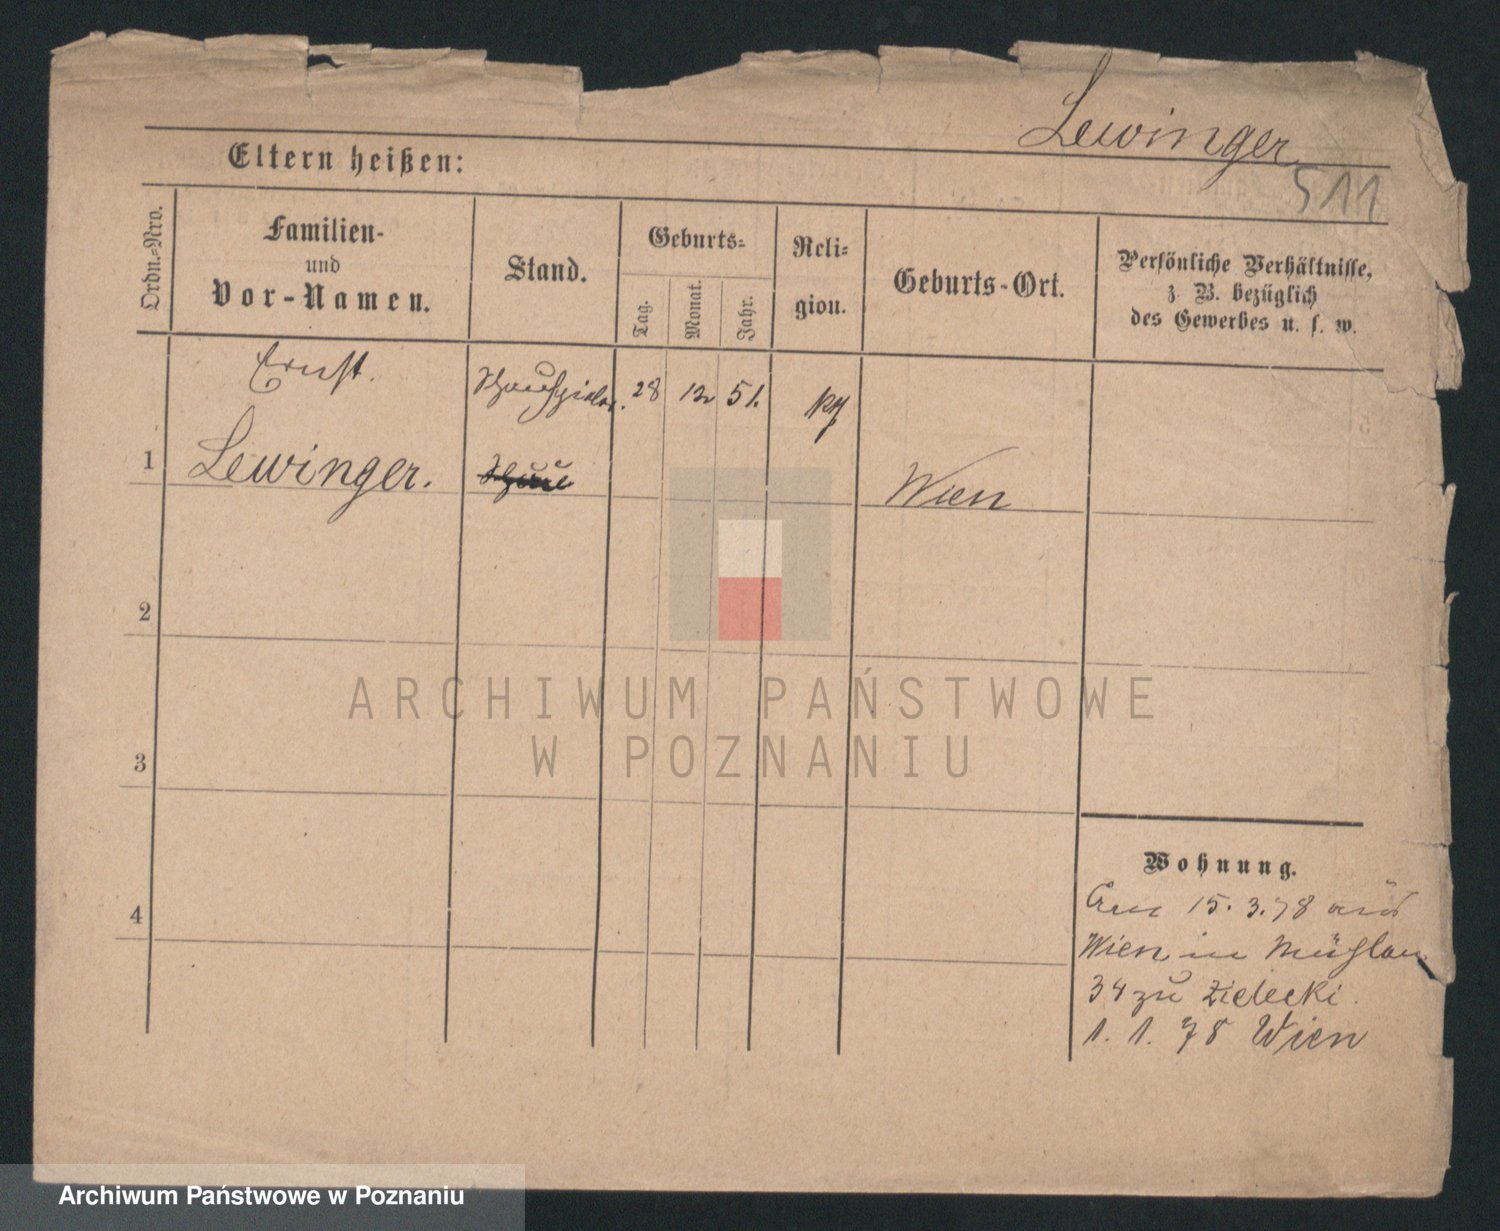 Lewinger
Eltern heißen:
511
Ordn.-Nro.
Familien-
und
Vor-Namen.
Stand.
Geburts-
Tag.
Monat.
Jahr.
Reli-
gion.
Geburts-Ort.
Persönliche Verhältnisse,
z. B. bezüglich
des Gewerbes u. s. w.
Ernst.
Schauspieler.
28
12
51.
1
Lewinger.
Wien
2
3
4
Wohnung.
15. 3. 78 aus
Wien in Mühlen
34 zu Zielecki.
1. 1. 78 Wien
ARCHIWUM PAŃSTWOWE
W POZNANIU
Archiwum Państwowe w Poznaniu